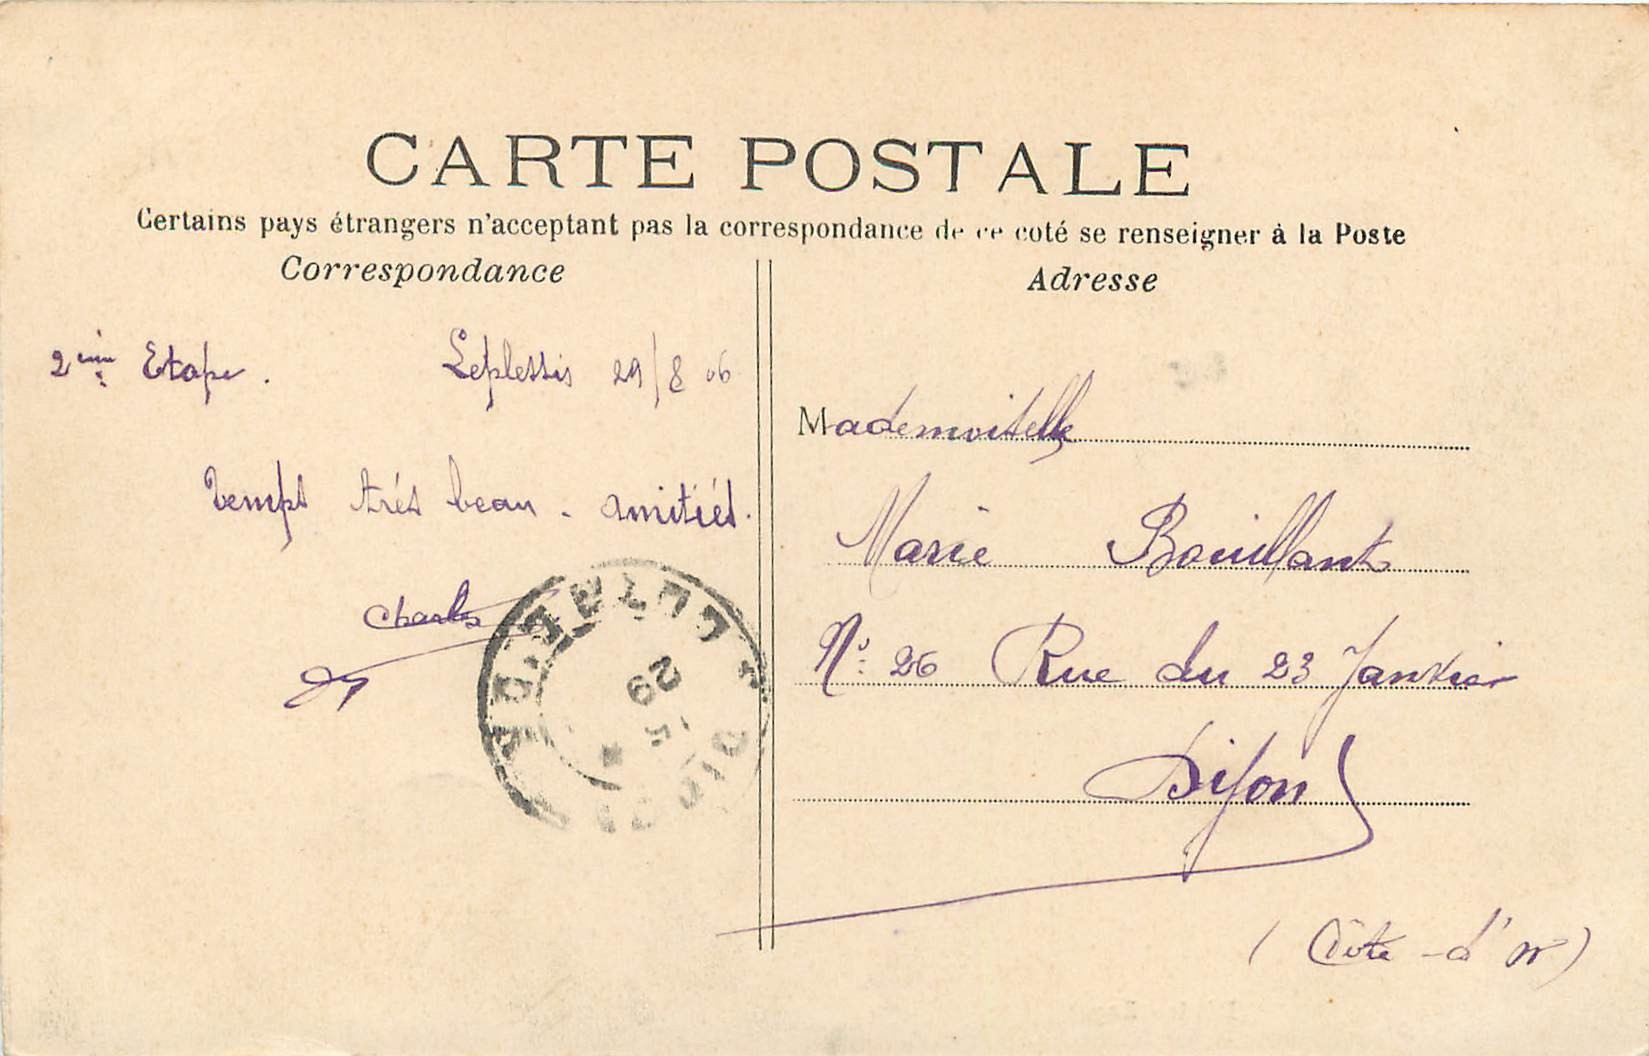 CARTE POSTALE
Certains pays étrangers n'acceptant pas la correspondance de ce coté se renseigner à la Poste
Correspondance
2ème Etape. Leplessis 29/8 06
Temps trés beau - amitiés.
Charles
Adresse
Mademoiselle
Marie Bouillant
N° 26 Rue du 23 Janvier
Dijon
(Côte-d'or)
DIJON
COTE D'OR
29